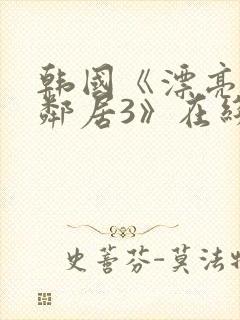 韩国《漂亮
邻居3》在线
史蒂芬-莫法特